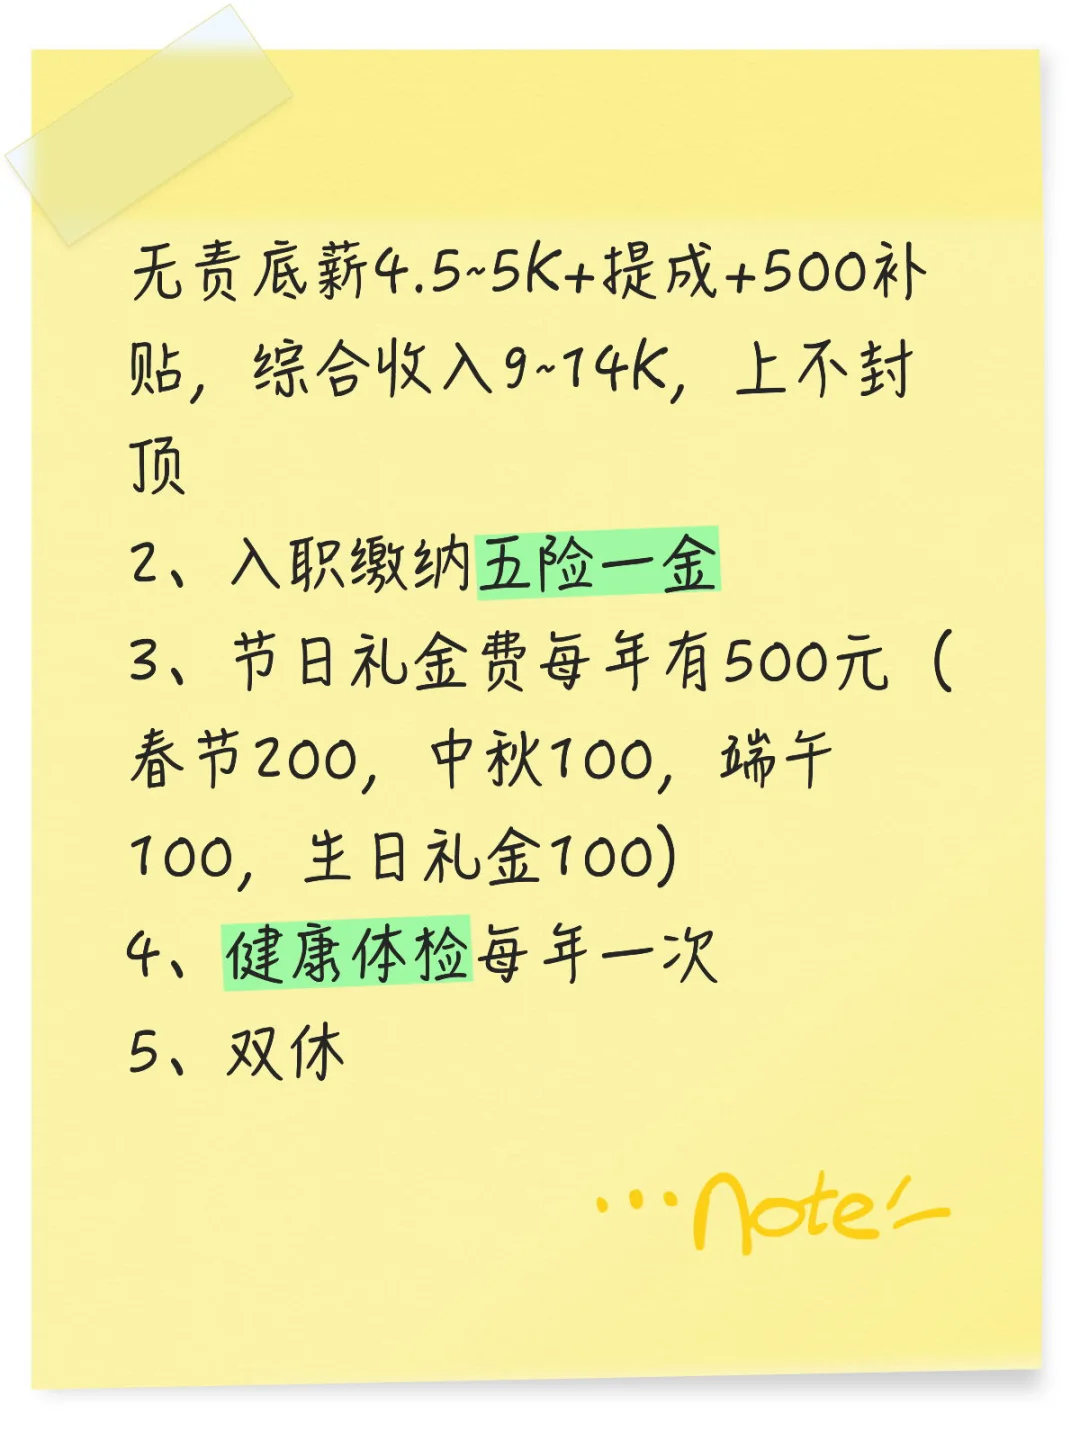 无责底薪4.5~5K+提成+500补
贴，综合收入9~14K，上不封
顶
2、入职缴纳五险一金
3、节日礼金费每年有500元（
春节200，中秋100，端午
100，生日礼金100)
4、健康体检每年一次
5、双休
...note